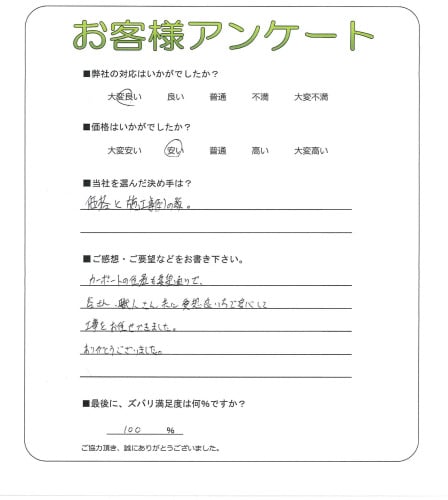 お客様アンケート
■弊社の対応はいかがでしたか？
大変良い 良い 普通 不満 大変不満
■価格はいかがでしたか？
大変安い 安い 普通 高い 大変高い
■当社を選んだ決め手は？
価格と施工事例の数。
■ご感想・ご要望などをお書き下さい。
カーポートの位置も希望通りで、
職人さん 共に 愛想良いので安心して
工事をお任せできました。
ありがとうございました。
■最後に、ズバリ満足度は何％ですか？
100 ％
ご協力頂き、誠にありがとうございました。